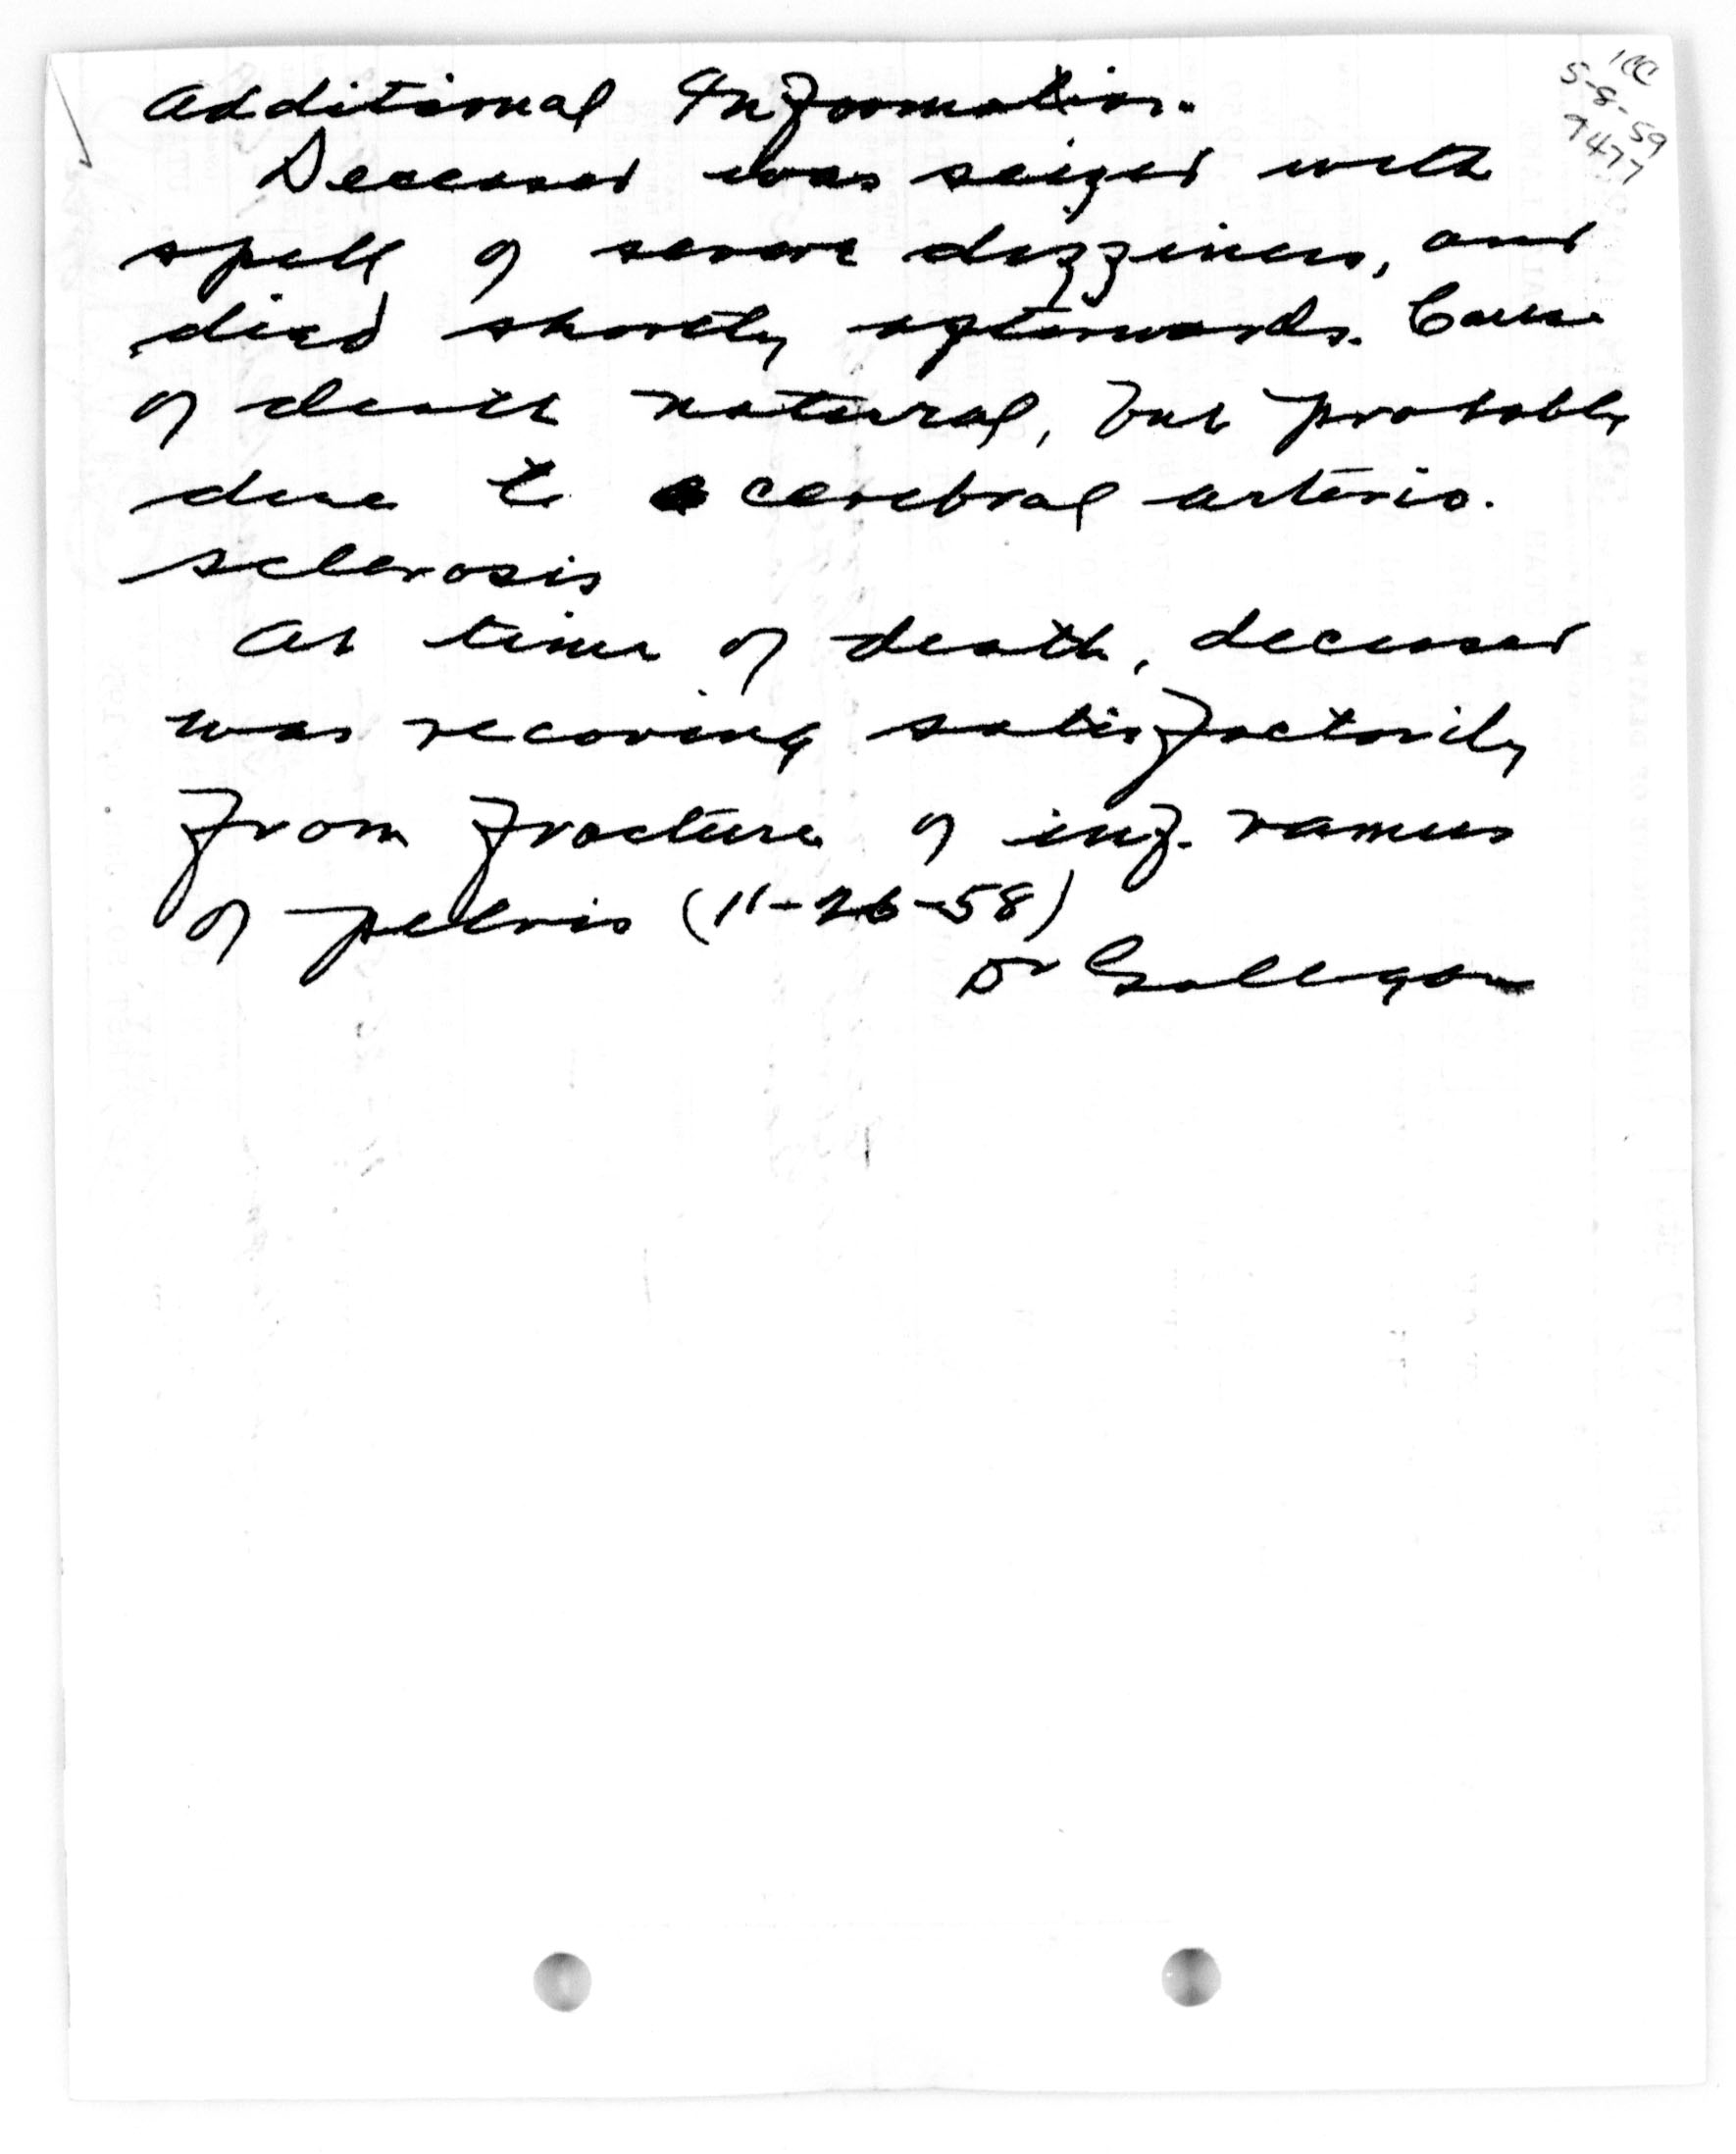 1CC
5-8-59
7477
Additional Information.
Deceased was seized with
spell of severe dizziness, and
died shortly afterwards. Cause
of death natural, but probably
due to cerebral arterio-
sclerosis
At time of death, deceased
was recoving satisfactorily
from fracture of inf. ramus
of pelvis (11-26-58)
Dr